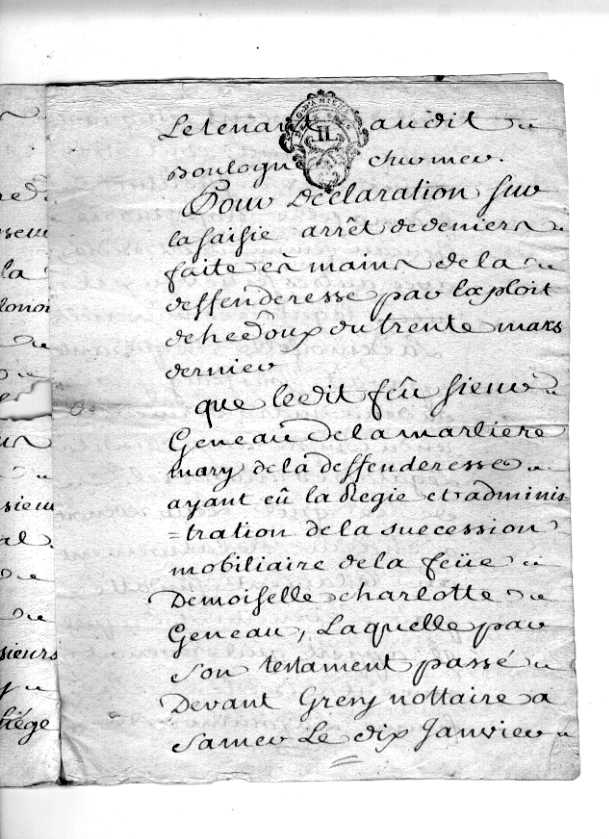 Letenant audit
Boulogne chez mer.
Pour Declaration sur
la saisie arrêt de deniers
faite es mains de la
deffenderesse par Exploit
de hedoux du trente mars
dernier
que ledit feû sieur
Geneau de la marliere
mary de la deffenderesse
ayant eû la Regie et adminis
=tration de la succession
mobiliaire de la feüe
Demoiselle charlotte
Geneau, Laquelle par
son testament passé
Devant Gresy nottaire a
Samer Le dix Janvier